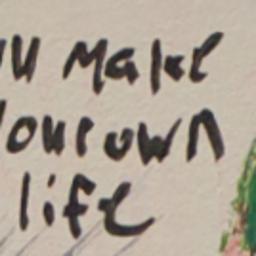 make
your own
life